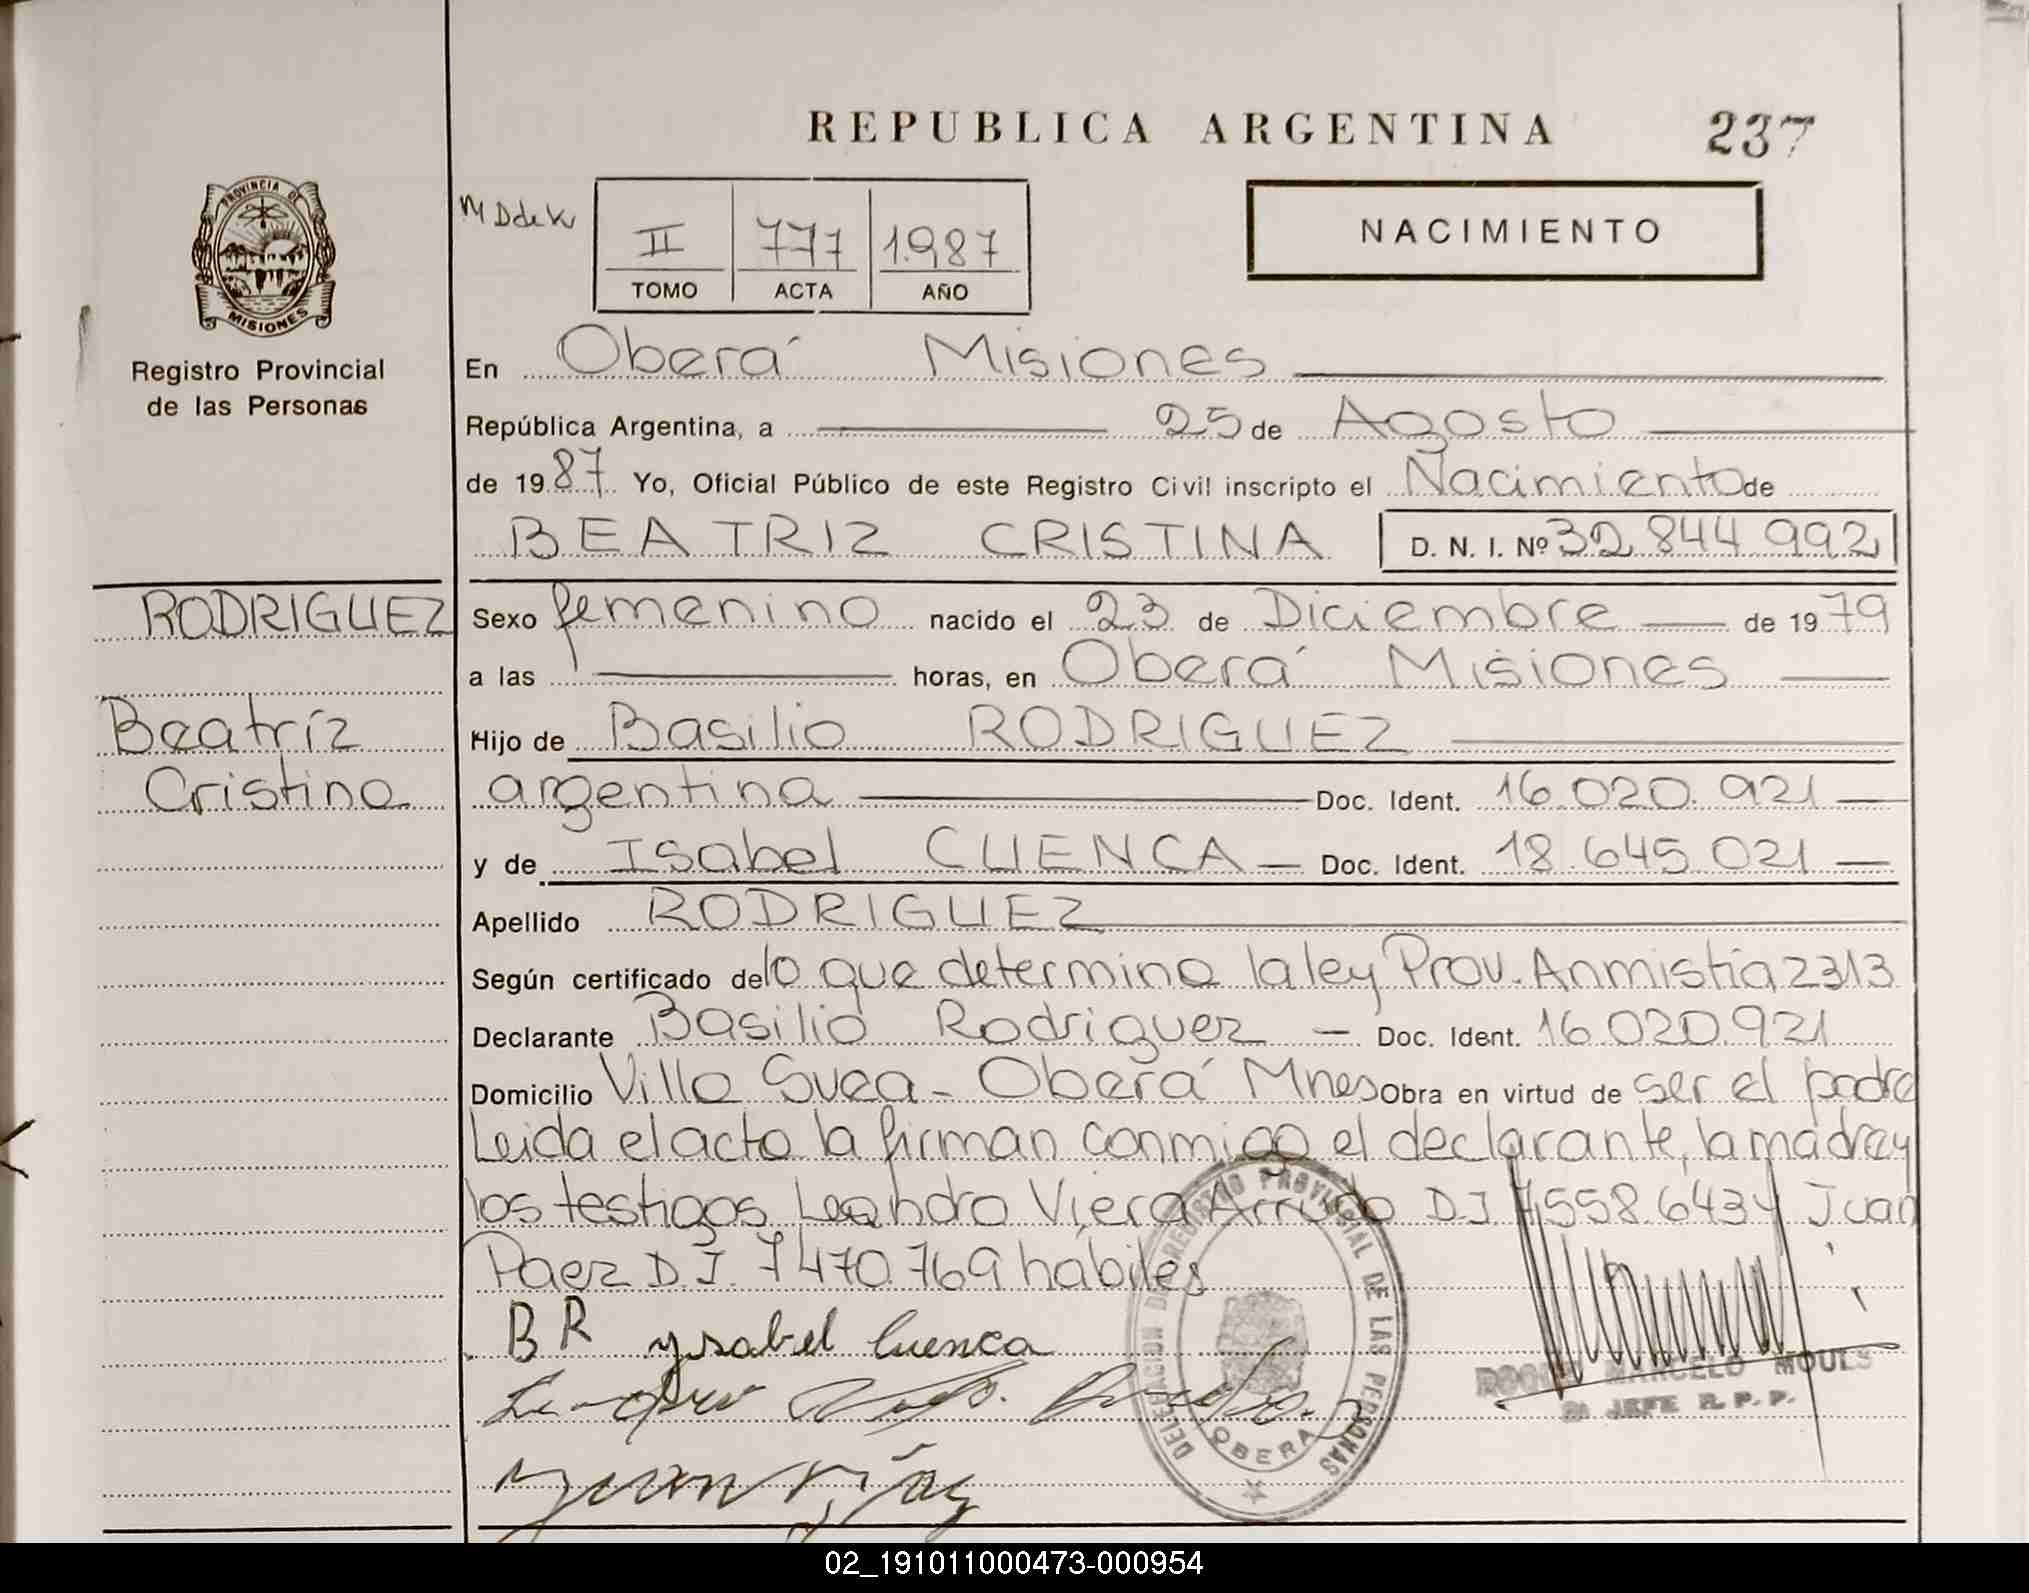 REPUBLICA ARGENTINA 237
PROVINCIA DE MISIONES
Registro Provincial
de las Personas
NACIMIENTO
II 777 1.987
TOMO ACTA AÑO
En Oberá Misiones
República Argentina, a 25 de Agosto
de 1987 Yo, Oficial Público de este Registro Civil inscripto el Nacimiento de
BEATRIZ CRISTINA D. N. I. Nº 32.844.992
RODRIGUEZ
Beatríz
Cristina
Sexo femenino nacido el 23 de Diciembre de 1979
a las horas, en Oberá Misiones
Hijo de Basilio RODRIGUEZ
argentina Doc. Ident. 16.020.921
y de Isabel CUENCA Doc. Ident. 18.645.021
Apellido RODRIGUEZ
Según certificado de lo que determina la ley Prov. Anmistía 2313
Declarante Basilio Rodriguez Doc. Ident. 16.020.921
Domicilio Villa Svea - Oberá Mnes Obra en virtud de ser el padre
Leida el acta la firman conmigo el declarante, la madre y
los testigos Leandro Viera Arrudo D.I 7.558.643 y Juan
Paez D.I. 7.470.769 habiles
B R Ysabel Cuenca
DELEGACION DE REGISTRO PROVINCIAL DE LAS PERSONAS
OBERA
MARCELO MOULS
JEFE R. P. P.
02_191011000473-000954